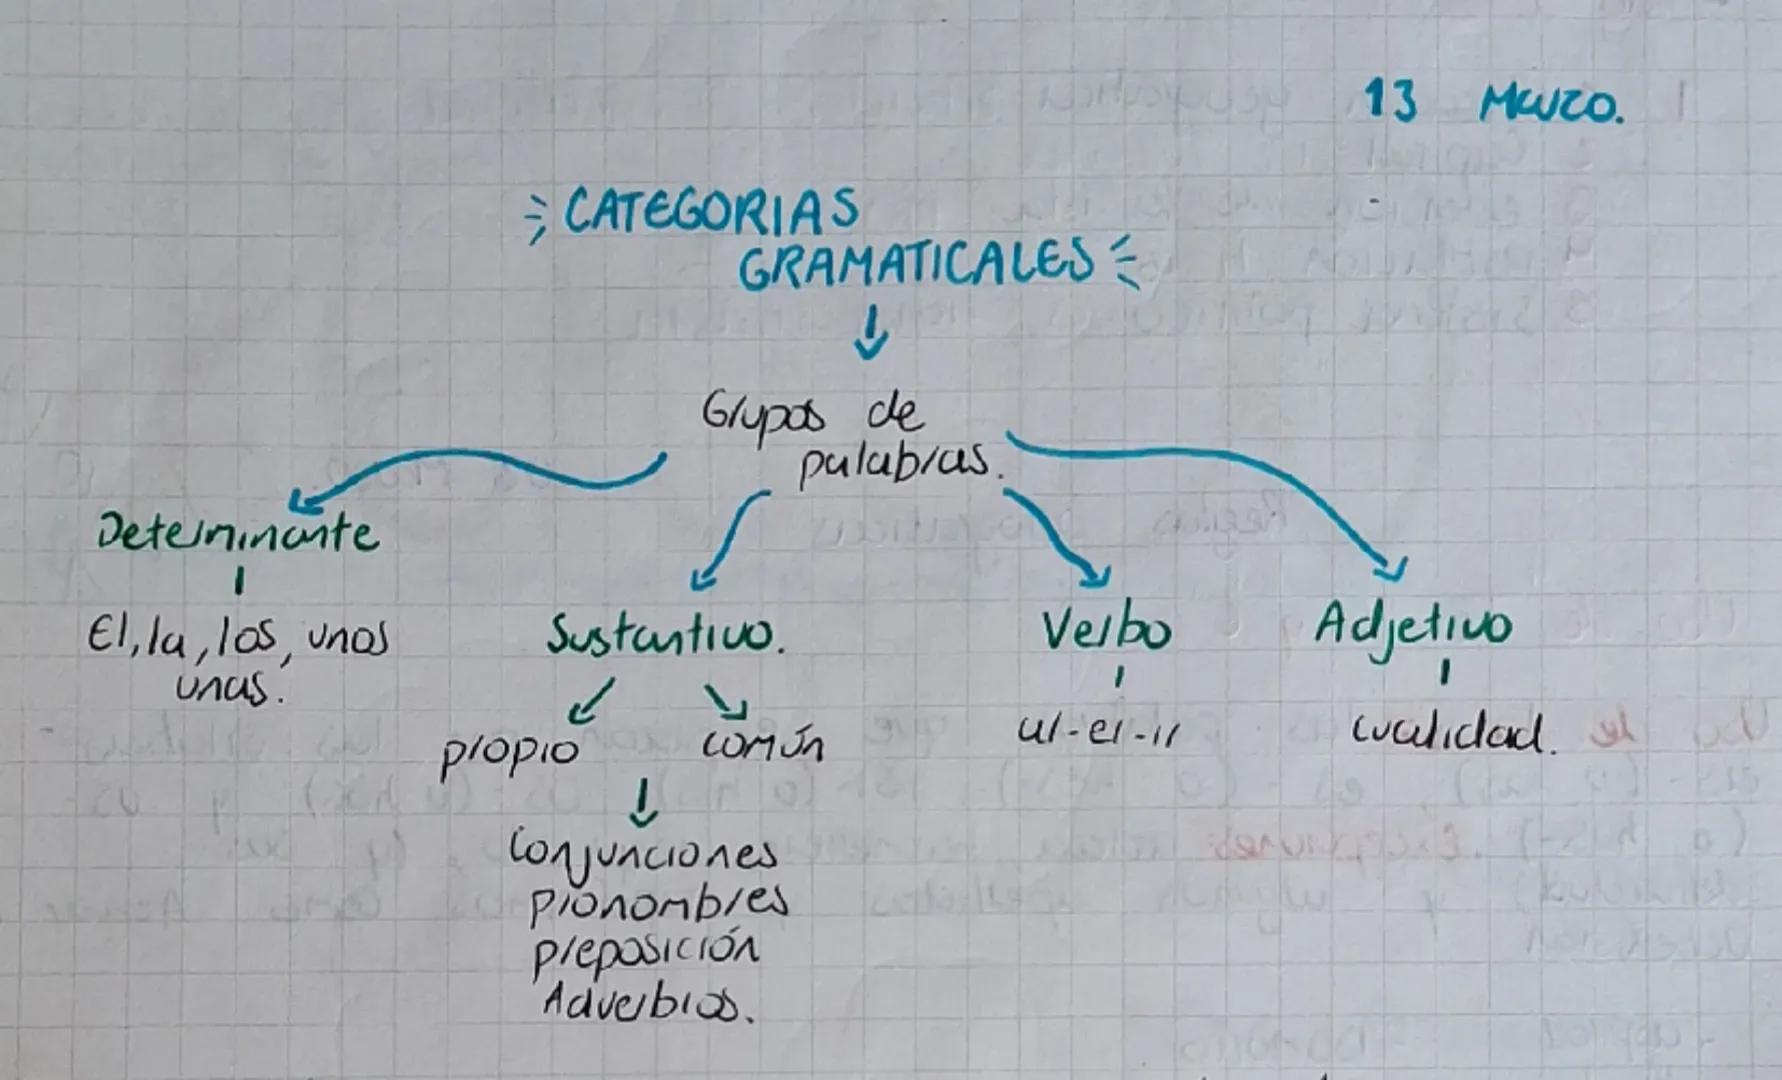 13 Marzo.
CATEGORIAS
GRAMATICALES
Grupos de
palabras.
Determinante
El, la, los, unos
unas.
Sustantivo.
Verbo
Adjetivo
propio
común
ar-er-ir
cualidad.
Conjunciones
pronombres
preposición
Adverbios.